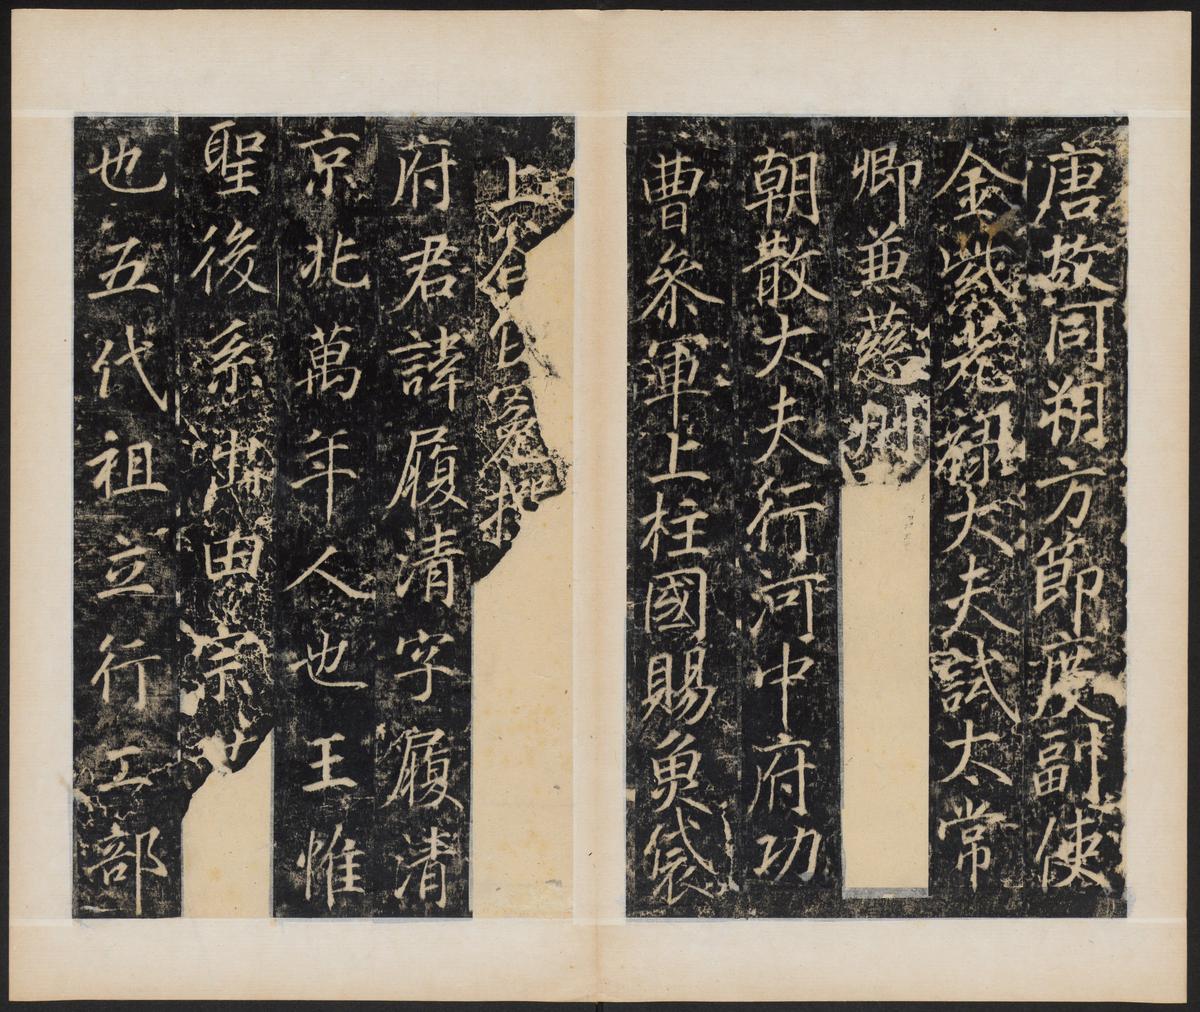 唐故同朔方節度副使
金紫光祿大夫試太常
卿兼慈州
朝散大夫行河中府功
曹叅軍上柱國賜魚袋
上谷冦
府君諱履清字履清
京兆萬年人也王惟
聖後系 由宗
也五代祖立行工部